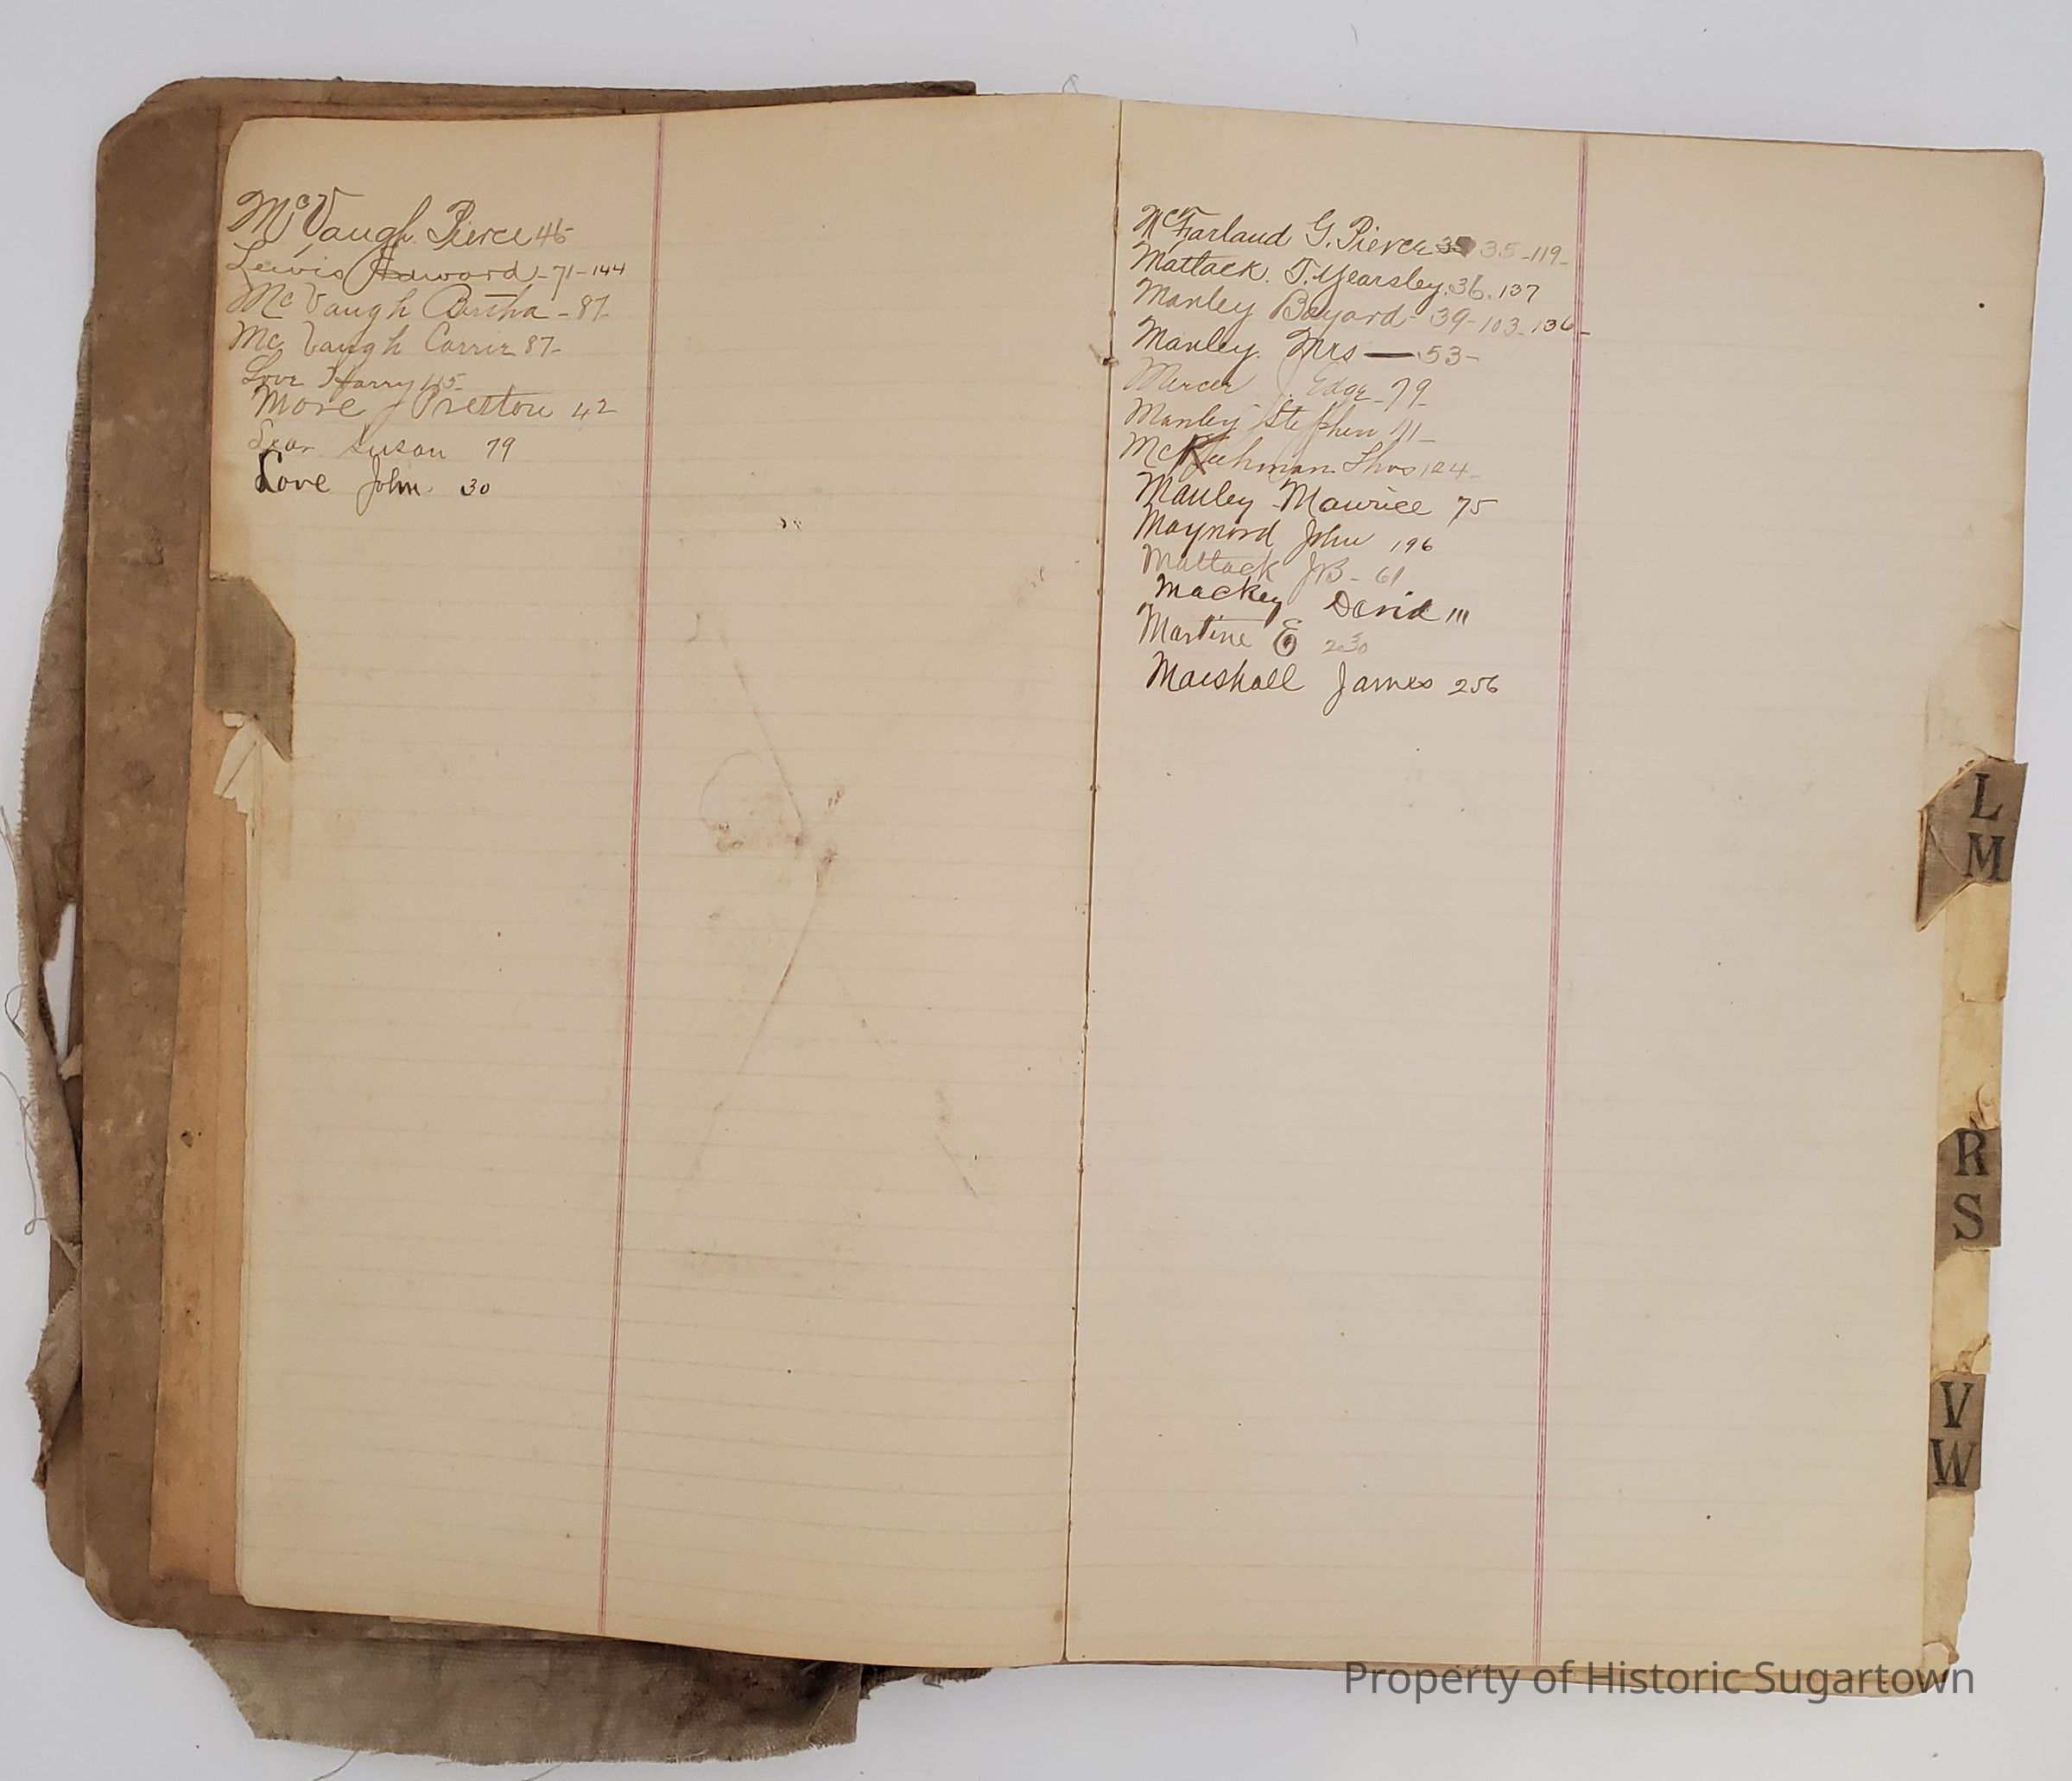 McVaugh Pierce 46
Lewis Howard - 71 - 144
McVaugh Bertha - 87-
McVaugh Carrie 87-
Love Harry 115-
More J Preston 42
Lear Susan 79
Love John 30
McFarland G. Pierce 35 35-119-
Matlack. T. Yearsley. 36. 137
Manley Bayard - 39-103-136-
Manley. Mrs — 53-
Mercer J. Edge - 79-
Manley Stephen 111-
Thos 124-
Manley Maurice 75
Maynord John 196
Matlack JB - 61
Mackey David 111
Martine E 230
Marshall James 256
L
M
R
S
V
W
Property of Historic Sugartown